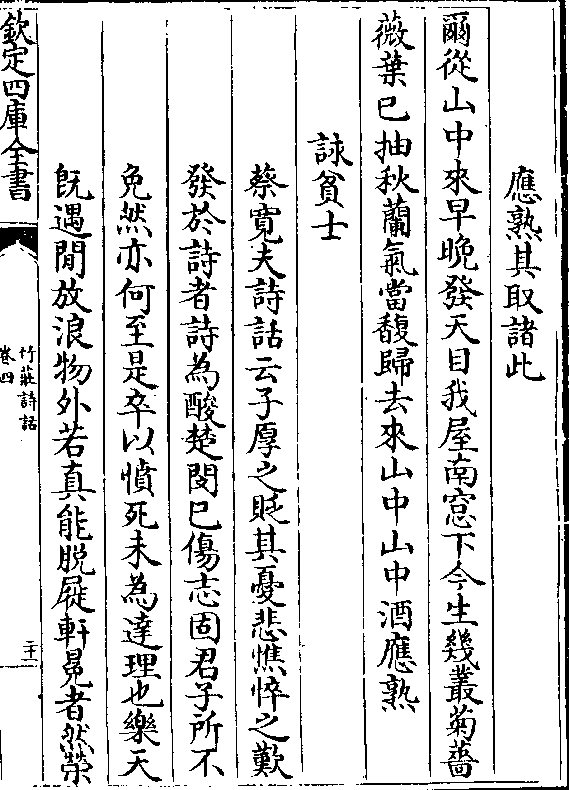 應熟其取諸此
爾從山中來早晩發天目我屋南窓下今生幾叢菊薔
薇葉已抽秋蘭氣當馥歸去來山中山中酒應熟
詠貧士
蔡寛夫詩話云子厚之貶其憂悲憔悴之歎
發於詩者詩為酸楚閔已傷志固君子所不
免然亦何至是卒以憤死未為達理也樂天
既遇閒放浪物外若真能脫屣軒冕者然榮
欽定四庫全書
竹莊詩話
卷四
二十一